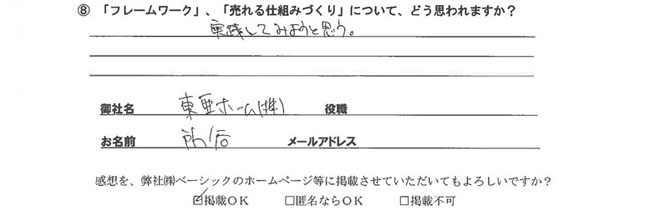 ⑧「フレームワーク」、「売れる仕組みづくり」について、どう思われますか？
実践してみようと思う。
御社名 東亜ホーム(株) 役職
お名前 メールアドレス
感想を、弊社㈱ベーシックのホームページ等に掲載させていただいてもよろしいですか？
☑掲載ＯＫ □匿名ならＯＫ □掲載不可